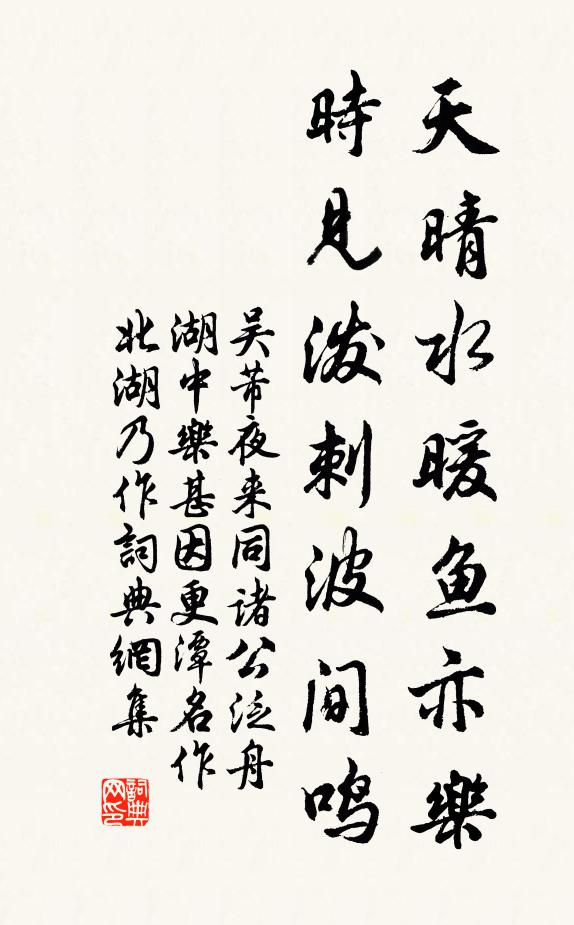 天晴水暖鱼亦樂
時見潑刺波间鸣
吴芾夜来同诸公泛舟
湖中樂甚因更潭名作
北湖乃作詞典網集
詞典
网印